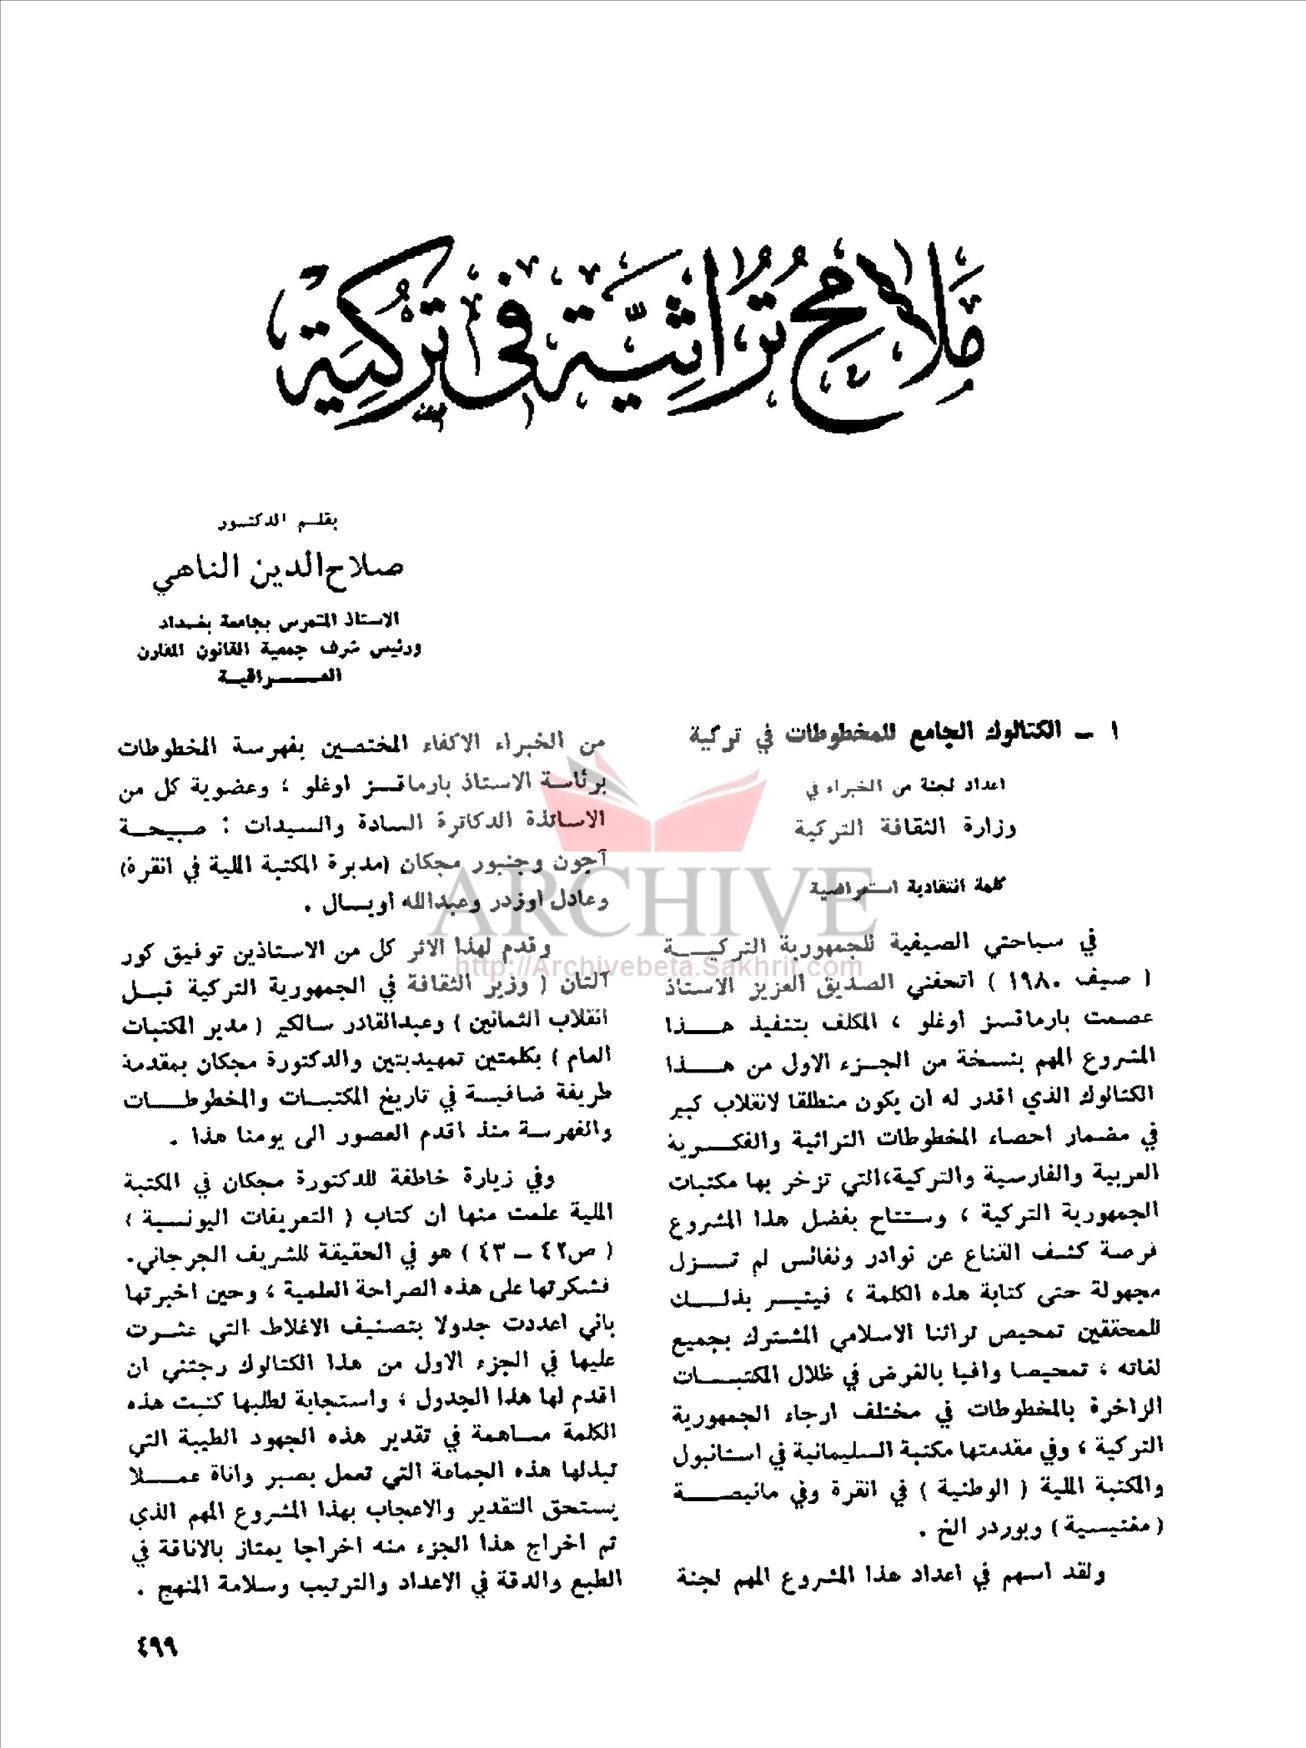 ملامح تراثية في تركية
بقلم الدكتور
صلاح الدين الناهي
الاستاذ المتمرس بجامعة بغداد
ورئيس شرف جمعية القانون المقارن
العراقية
١ ــ الكتالوك الجامع للمخطوطات في تركية
اعداد لجنة من الخبراء في
وزارة الثقافة التركية
كلمة انتقادية استعراضية
في سياحتي الصيفية للجمهورية التركية
( صيف ١٩٨٠ ) اتحفني الصديق العزيز الاستاذ
عصمت بارماقسز أوغلو ، المكلف بتنفيذ هذا
المشروع المهم بنسخة من الجزء الاول من هذا
الكتالوك الذي اقدر له ان يكون منطلقا لانقلاب كبير
في مضمار احصاء المخطوطات التراثية والفكرية
العربية والفارسية والتركية،التي تزخر بها مكتبات
الجمهورية التركية ، وستتاح بفضل هذا المشروع
فرصة كشف القناع عن نوادر ونفائس لم تزل
مجهولة حتى كتابة هذه الكلمة ، فيتيسر بذلك
للمحققين تمحيص تراثنا الاسلامي المشترك بجميع
لغاته ، تمحيصا وافيا بالغرض في ظلال المكتبات
الزاخرة بالمخطوطات في مختلف ارجاء الجمهورية
التركية ، وفي مقدمتها مكتبة السليمانية في استانبول
والمكتبة الملية ( الوطنية ) في انقرة وفي مانيصة
( مغنيسية ) وبوردر الخ .
ولقد اسهم في اعداد هذا المشروع المهم لجنة
من الخبراء الاكفاء المختصين بفهرسة المخطوطات
برئاسة الاستاذ بارماقسز اوغلو ، وعضوية كل من
الاساتذة الدكاترة السادة والسيدات : صبيحة
آجون وجنبور مجكان (مديرة المكتبة الملية في انقرة)
وعادل اوزدر وعبدالله أويسال .
وقدم لهذا الاثر كل من الاستاذين توفيق كور
آلتان ( وزير الثقافة في الجمهورية التركية قبل
انقلاب الثمانين ) وعبدالقادر سالكير ( مدير المكتبات
العام ) بكلمتين تمهيديتين والدكتورة مجكان بمقدمة
طريفة ضافية في تاريخ المكتبات والمخطوطات
والفهرسة منذ اقدم العصور الى يومنا هذا .
وفي زيارة خاطفة للدكتورة مجكان في المكتبة
الملية علمت منها ان كتاب ( التعريفات اليونسية )
( ص٤٢ ــ ٤٣ ) هو في الحقيقة للشريف الجرجاني.
فشكرتها على هذه الصراحة العلمية ، وحين اخبرتها
باني اعددت جدولا بتصنيف الاغلاط التي عثرت
عليها في الجزء الاول من هذا الكتالوك رجتني ان
اقدم لها هذا الجدول ، واستجابة لطلبها كتبت هذه
الكلمة مساهمة في تقدير هذه الجهود الطيبة التي
تبذلها هذه الجماعة التي تعمل بصبر واناة عملا
يستحق التقدير والاعجاب بهذا المشروع المهم الذي
تم اخراج هذا الجزء منه اخراجا يمتاز بالاناقة في
الطبع والدقة في الاعداد والترتيب وسلامة المنهج .
٤٩٩
ARCHIVE
http://Archivebeta.Sakhrit.com